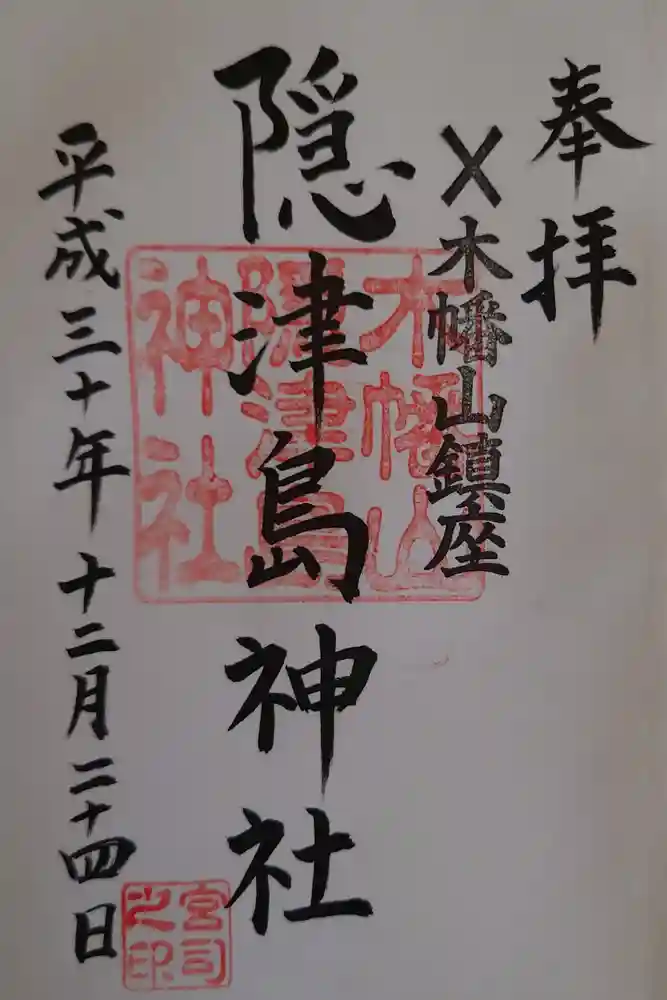 奉拝
〆木幡山鎮座
隠津島神社
平成三十年十二月二十四日
木幡山
隠津島
神社
宮司
之印